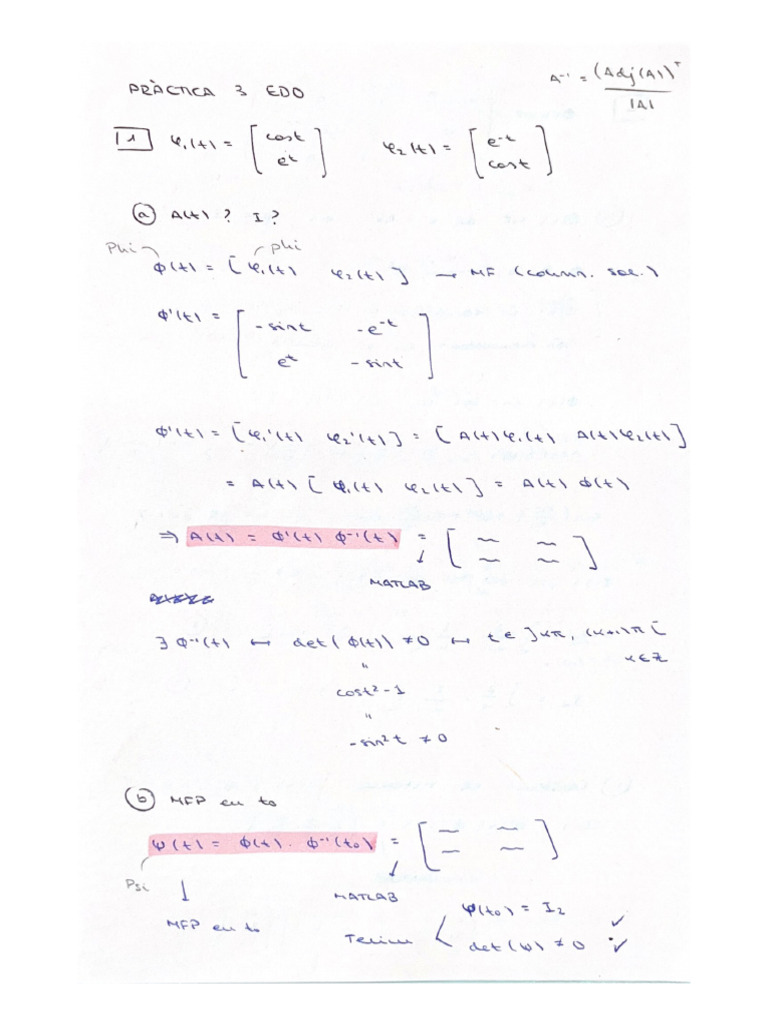 PRÀCTICA 3 EDO
A⁻¹ = (Adj(A))ᵀ / |A|
1 φ₁(t) = [ cost eᵗ ] φ₂(t) = [ e⁻ᵗ cost ]
a A(t)? I?
Phi phi
ϕ(t) = [ φ₁(t) φ₂(t) ] → MF (column. sol.)
ϕ'(t) = [ -sint -e⁻ᵗ
eᵗ -sint ]
ϕ'(t) = [ φ₁'(t) φ₂'(t) ] = [ A(t)φ₁(t) A(t)φ₂(t) ]
= A(t) [ φ₁(t) φ₂(t) ] = A(t) ϕ(t)
⇒ A(t) = ϕ'(t) ϕ⁻¹(t) = [ ~ ~ ~ ~ ]
↓
MATLAB
∃ ϕ⁻¹(t) ↔ det(ϕ(t)) ≠ 0 ↔ t ∈ ]kπ, (k+1)π[
k∈Z
"
cost² - 1
"
-sin²t ≠ 0
b MFP en to
ψ(t) = ϕ(t) · ϕ⁻¹(t₀) = [ ~ ~ ~ ~ ]
Psi ↓
MATLAB
MFP en to
Tenim < ψ(t₀) = I₂ ✓
det(ψ) ≠ 0 ✓